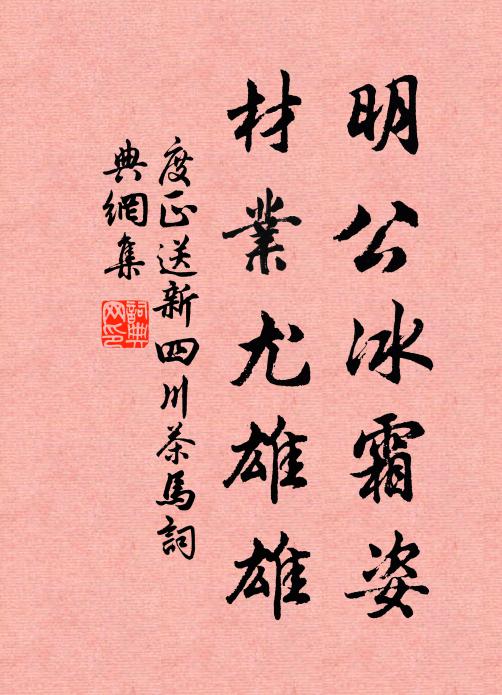 明公冰霜姿
材業尤雄雄
度正送新四川茶馬詞
典網集
詞典
网印